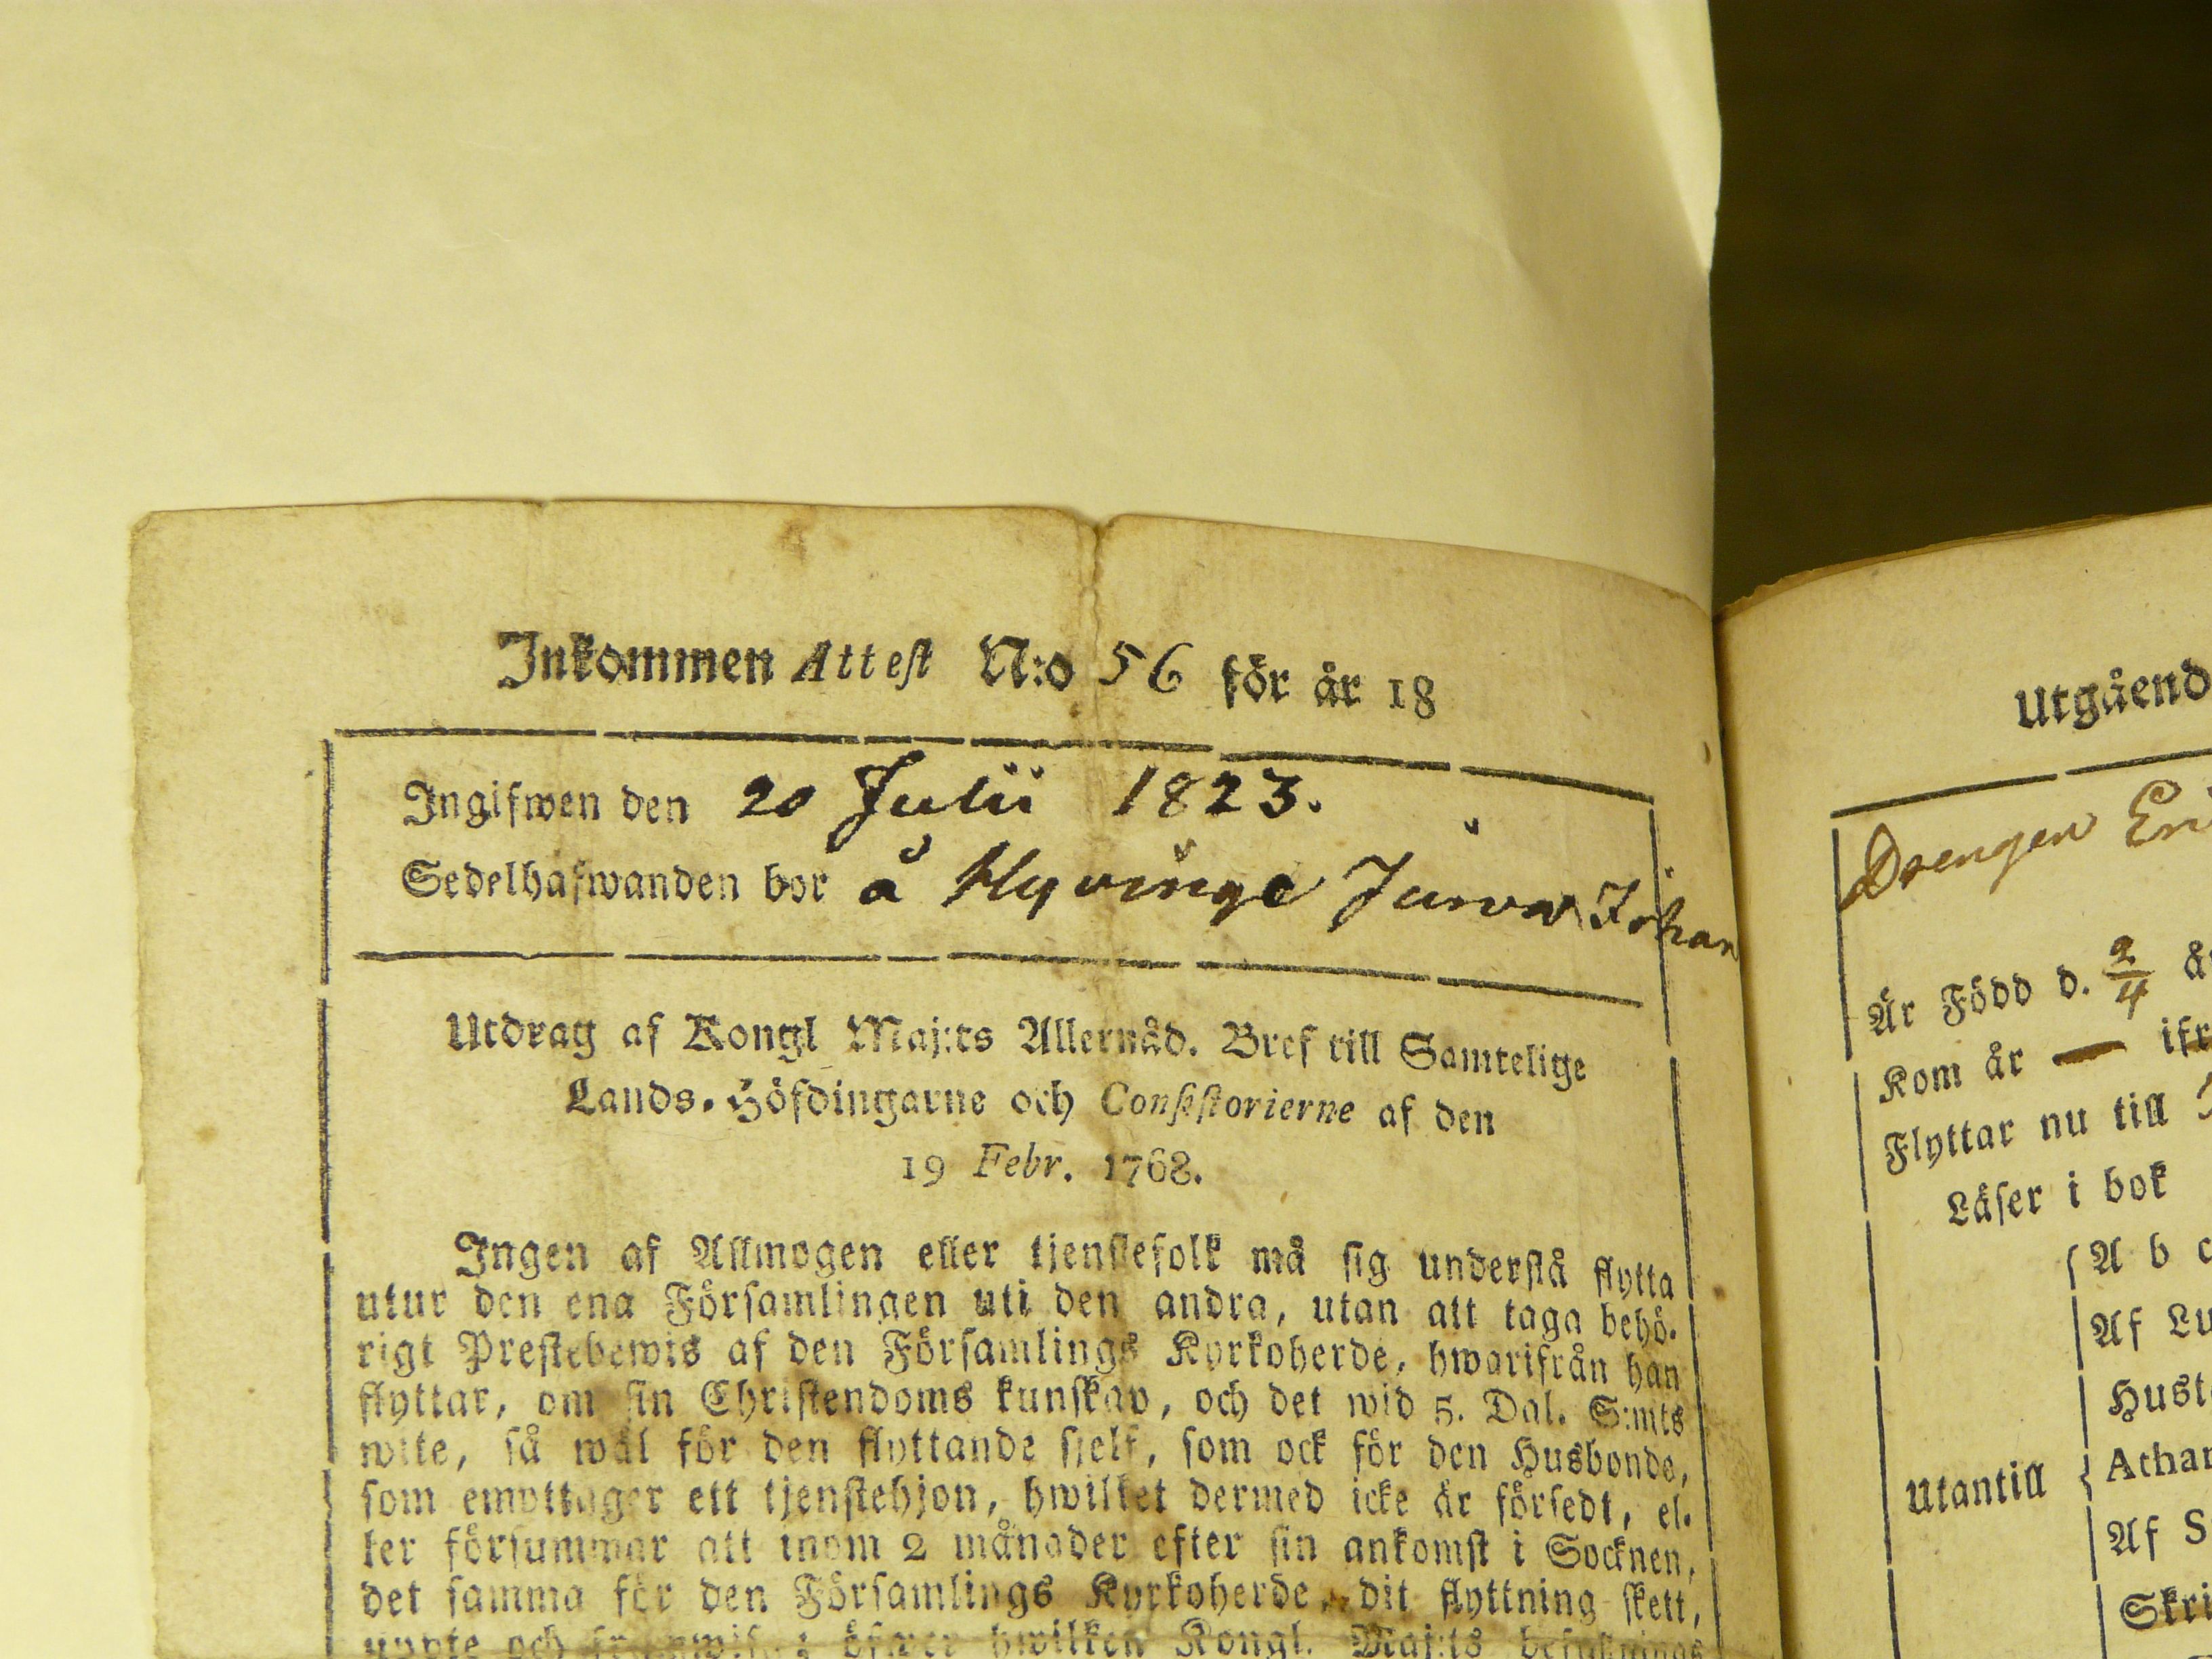 Inkommen Attest N:o 56 för år 18
Ingifwen den 20 Julii 1823.
Sedelhafwanden bor å Hyvinge Juwa Johan
Utdrag af Kongl Maj:ts Allernåd. Bref till Samtelige
Lands-Höfdingarne och Consistorierne af den
19 Febr. 1768.
Ingen af Allmogen eller tjenstefolk må sig understå flytta
utur den ena Församlingen uti den andra, utan att taga behö-
rigt Prestebewis af den Församlings Kyrkoherde, hwarifrån han
flyttar, om sin Christendoms kunskap, och det wid 5. Dal. S:mts
wite, så wäl för den flyttande sjelf, som ock för den Husbonde,
som emottager ett tjenstehjon, hwilket dermed icke är försedt, el-
ler försummar att inom 2 månader efter sin ankomst i Socknen,
det samma för den Församlings Kyrkoherde, dit flyttning skett,
uppte och hwilken Kongl. Maj:ts
Utgåend
Drengen Eri
Är Född d. 2/4 år
Kom år — ifr
Flyttar nu till
Läser i bok
Utantill
A b c
Af Lu
Hust
Athan
Af S
Skri